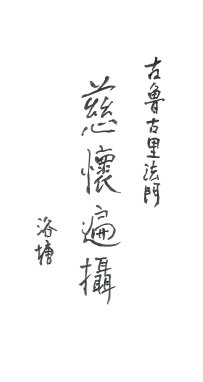 古魯古里法門
慈懷遍攝
洛塘